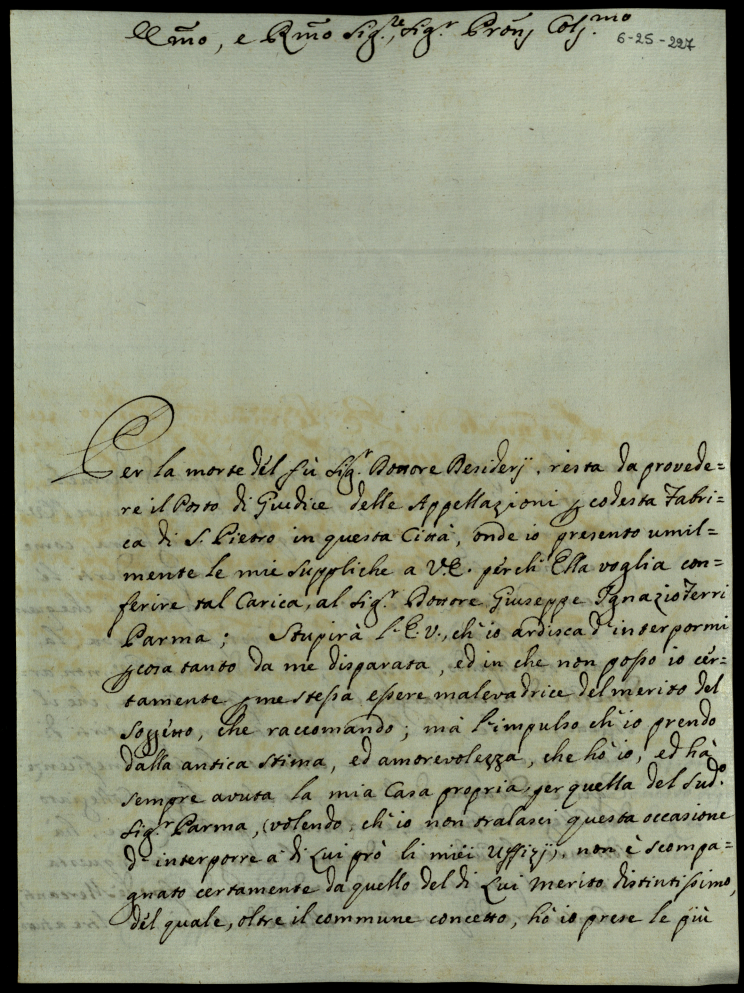 Illmo, e Rmo Sig.re, Sig.r Prone Col.mo
6-25-227
Per la morte del fù Sig.r Dottore Desiderij, resta da provede=
re il Posto di Giudice delle Appellazioni p codesta Fabri=
ca di S. Pietro in questa Città, onde io presento umil=
mente le mie suppliche a V.E. perchè Ella voglia con=
ferire tal Carica, al Sig.r Dottore Giuseppe Ignazio Ferri
Parma; Stupirà l'E.V., ch'io ardisca d'interpormi
p cosa tanto da me disparata, ed in che non posso io cer=
tamente p me stessa essere malevadrice del merito del
Soggetto, che raccomando; mà l'impulso ch'io prendo
dalla antica stima, ed amorevolezza, che hò io, ed hà
sempre avuta la mia Casa propria per quella del Sud.o
Sig.r Parma, (volendo, ch'io non tralasci questa occasione
d'interporre à di Lui prò li miei Uffizij), non è scompa=
gnato certamente da quello del di Lui merito distintissimo,
del quale, oltre il commune concetto, hò io prese le più